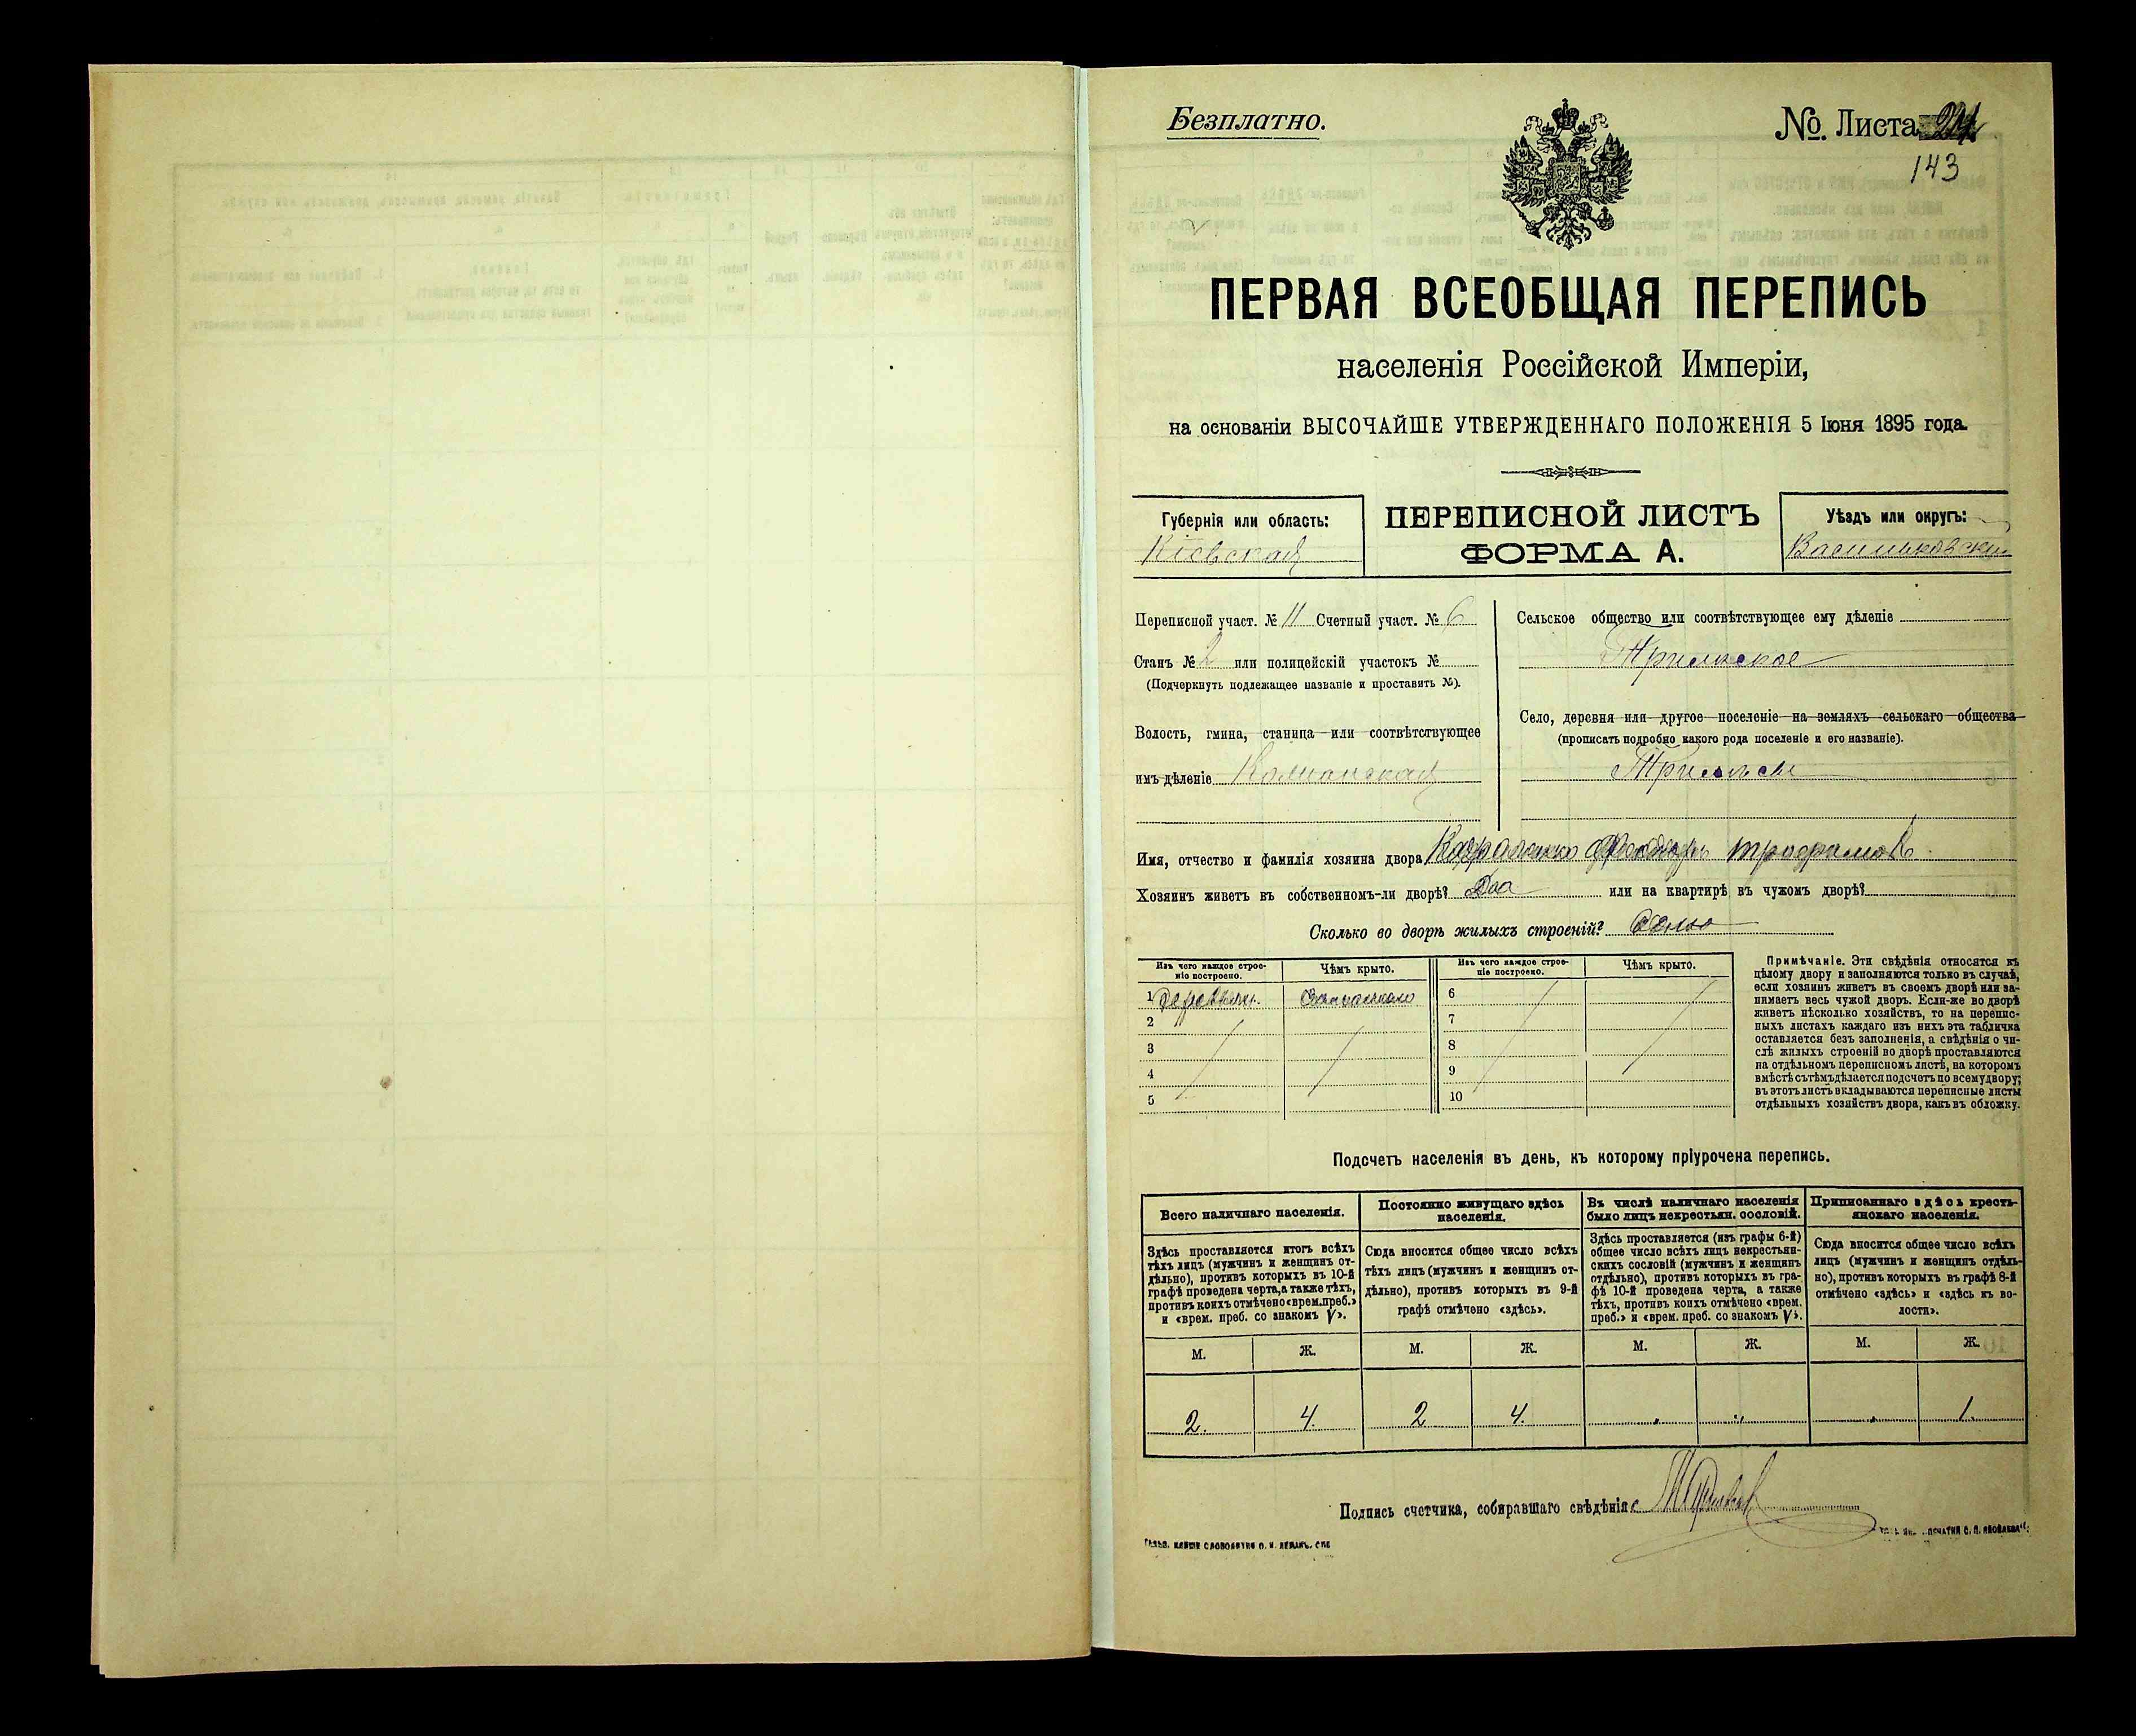 Безплатно.
№ Листа
143
ПЕРВАЯ ВСЕОБЩАЯ ПЕРЕПИСЬ
населенія Россійской Имперіи,
на основаніи ВЫСОЧАЙШЕ УТВЕРЖДЕННАГО ПОЛОЖЕНІЯ 5 Іюня 1895 года.
Губернія или область:
Кіевская
ПЕРЕПИСНОЙ ЛИСТЪ
ФОРМА А.
Уѣздъ или округъ:
Васильковскій
Переписной участ. № 11 Счетный участ. № 6
Станъ № 2 или полицейскій участокъ №
(Подчеркнуть подлежащее названіе и проставить №).
Волость, гмина, станица или соотвѣтствующее
имъ дѣленіе
Сельское общество или соотвѣтствующее ему дѣленіе
Трилѣское
Село, деревня или другое поселеніе на земляхъ сельскаго общества
(прописать подробно какого рода поселеніе и его названіе).
Трилѣсы
Имя, отчество и фамилія хозяина двора
Хозяинъ живетъ въ собственномъ-ли дворѣ? Да или на квартирѣ въ чужомъ дворѣ?
Сколько во дворѣ жилыхъ строеній? Одно
Изъ чего каждое строе-
ніе построено.
Чѣмъ крыто.
Изъ чего каждое строе-
ніе построено.
Чѣмъ крыто.
1 Деревян. 6
2 7
3 8
4 9
5 10
Примѣчаніе. Эти свѣдѣнія относятся къ
цѣлому двору и заполняются только въ случаѣ,
если хозяинъ живетъ въ своемъ дворѣ или за-
нимаетъ весь чужой дворъ. Если-же во дворѣ
живетъ нѣсколько хозяйствъ, то на перепис-
ныхъ листахъ каждаго изъ нихъ эта табличка
оставляется безъ заполненія, а свѣдѣнія о чи-
слѣ жилыхъ строеній во дворѣ проставляются
на отдѣльномъ переписномъ листѣ, на которомъ
вмѣстѣ съ тѣмъ дѣлается подсчетъ по всему двору;
въ этотъ листъ вкладываются переписные листы
отдѣльныхъ хозяйствъ двора, какъ въ обложку.
Подсчетъ населенія въ день, къ которому пріурочена перепись.
Всего наличнаго населенія.
Здѣсь проставляется итогъ всѣхъ
тѣхъ лицъ (мужчинъ и женщинъ от-
дѣльно), противъ которыхъ въ 10-й
графѣ проведена черта, а также тѣхъ,
противъ коихъ отмѣчено «врем. преб.»
и «врем. преб. со знакомъ V».
Постоянно живущаго здѣсь
населенія.
Сюда вносится общее число всѣхъ
тѣхъ лицъ (мужчинъ и женщинъ от-
дѣльно), противъ которыхъ въ 9-й
графѣ отмѣчено «здѣсь».
Въ числѣ наличнаго населенія
было лицъ некрестьян. сословій.
Здѣсь проставляется (изъ графы 6-й)
общее число всѣхъ лицъ некрестьян-
скихъ сословій (мужчинъ и женщинъ
отдѣльно), противъ которыхъ въ гра-
фѣ 10-й проведена черта, а также
тѣхъ, противъ коихъ отмѣчено «врем.
преб.» и «врем. преб. со знакомъ V».
Приписаннаго здѣсь кресть-
янскаго населенія.
Сюда вносится общее число всѣхъ
лицъ (мужчинъ и женщинъ отдѣль-
но), противъ которыхъ въ графѣ 8-й
отмѣчено «здѣсь» и «здѣсь къ во-
лости».
М. Ж. М. Ж. М. Ж. М. Ж.
2. 4. 2 4. „ „ „ 1.
Подпись счетчика, собиравшаго свѣдѣнія